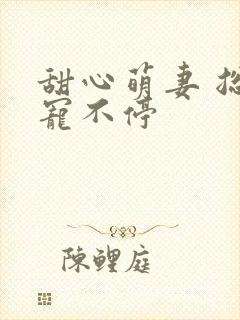 甜心萌妻
宠不停
陳鯉庭